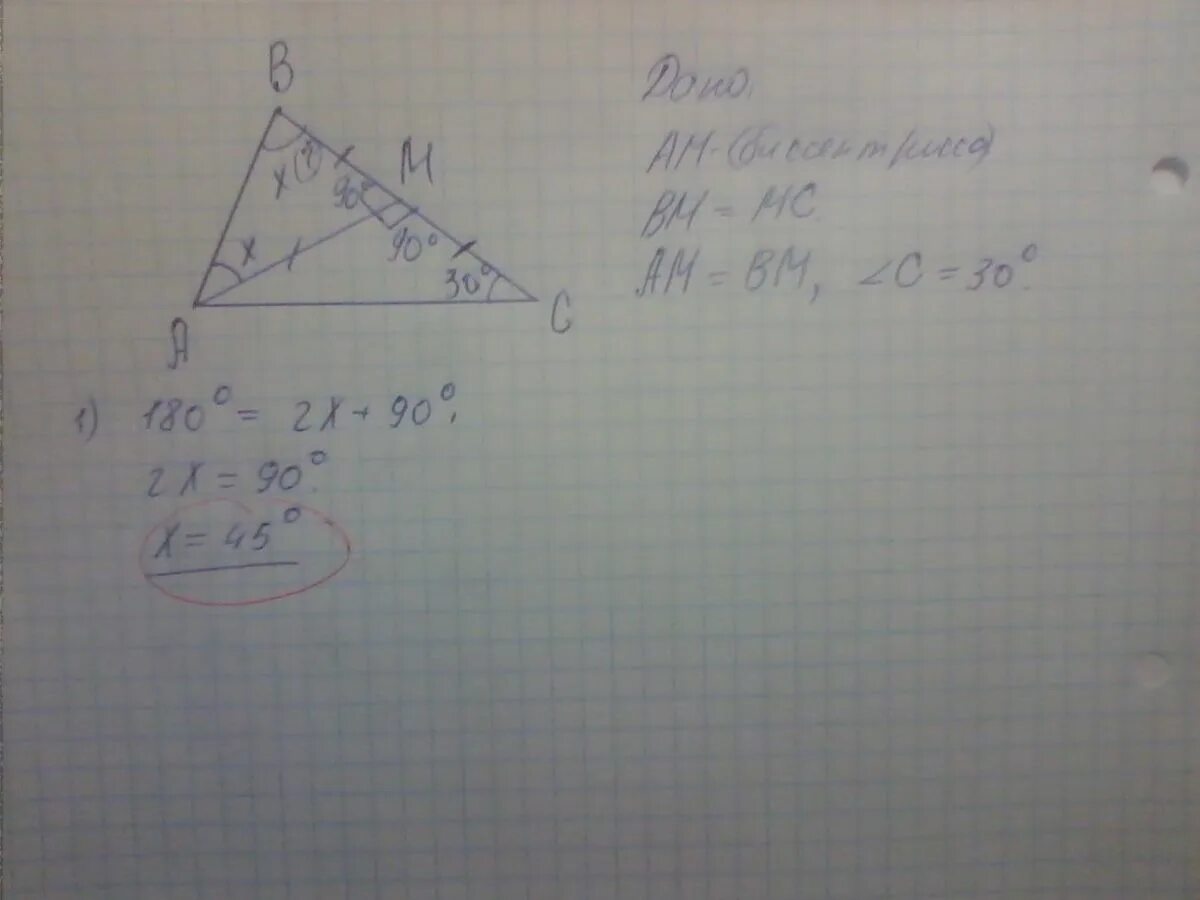 B
M
x ?
90°
90°
x
30°
A
C
Дано.
AM-(биссектриса)
BM = MC
AM = BM, ∠C = 30°.
1) 180° = 2x + 90°.
2x = 90°.
x = 45°